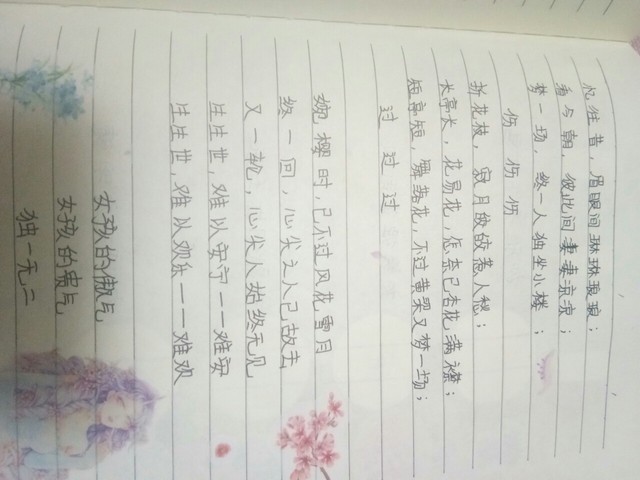 忆往昔，眉眼间琳琳琅琅；
看今朝，彼此间凄凄凉凉；
梦一场，终一人独坐小楼；
伤 伤 伤
折花枝，寂月皎皎惹人愁；
长亭长，花易花，怎奈已杏花满襟；
短亭短，舞落花，不过黄粱又梦一场；
过 过 过
婉樱时，已不过风花雪月
终一回，心尖之人已故去
又一轮，心尖人始终无见
生生世，难以安宁——难安
生生世，难以欢乐——难欢
女孩的傲气
女孩的贵气
独一无二